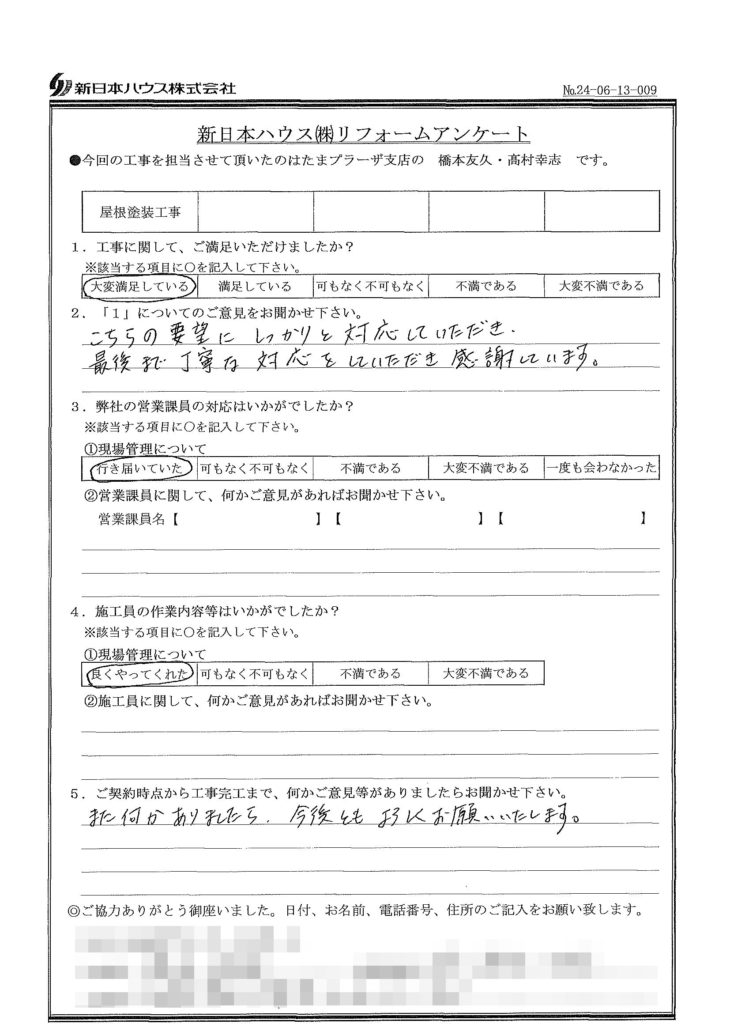 新日本ハウス株式会社
№24-06-13-009
新日本ハウス㈱リフォームアンケート
●今回の工事を担当させて頂いたのはたまプラーザ支店の 橋本友久・髙村幸志 です。
屋根塗装工事
1．工事に関して、ご満足いただけましたか？
※該当する項目に〇を記入して下さい。
大変満足している 満足している 可もなく不可もなく 不満である 大変不満である
2．「1」についてのご意見をお聞かせ下さい。
こちらの要望に しっかりと対応していただき、
最後まで丁寧な対応をしていただき感謝しています。
3．弊社の営業課員の対応はいかがでしたか？
※該当する項目に〇を記入して下さい。
①現場管理について
行き届いていた 可もなく不可もなく 不満である 大変不満である 一度も会わなかった
②営業課員に関して、何かご意見があればお聞かせ下さい。
営業課員名【 】【 】【 】
4．施工員の作業内容等はいかがでしたか？
※該当する項目に〇を記入して下さい。
①現場管理について
良くやってくれた 可もなく不可もなく 不満である 大変不満である
②施工員に関して、何かご意見があればお聞かせ下さい。
5．ご契約時点から工事完工まで、何かご意見等がありましたらお聞かせ下さい。
また何かありましたら、今後とも よろしくお願いいたします。
◎ご協力ありがとう御座いました。日付、お名前、電話番号、住所のご記入をお願い致します。